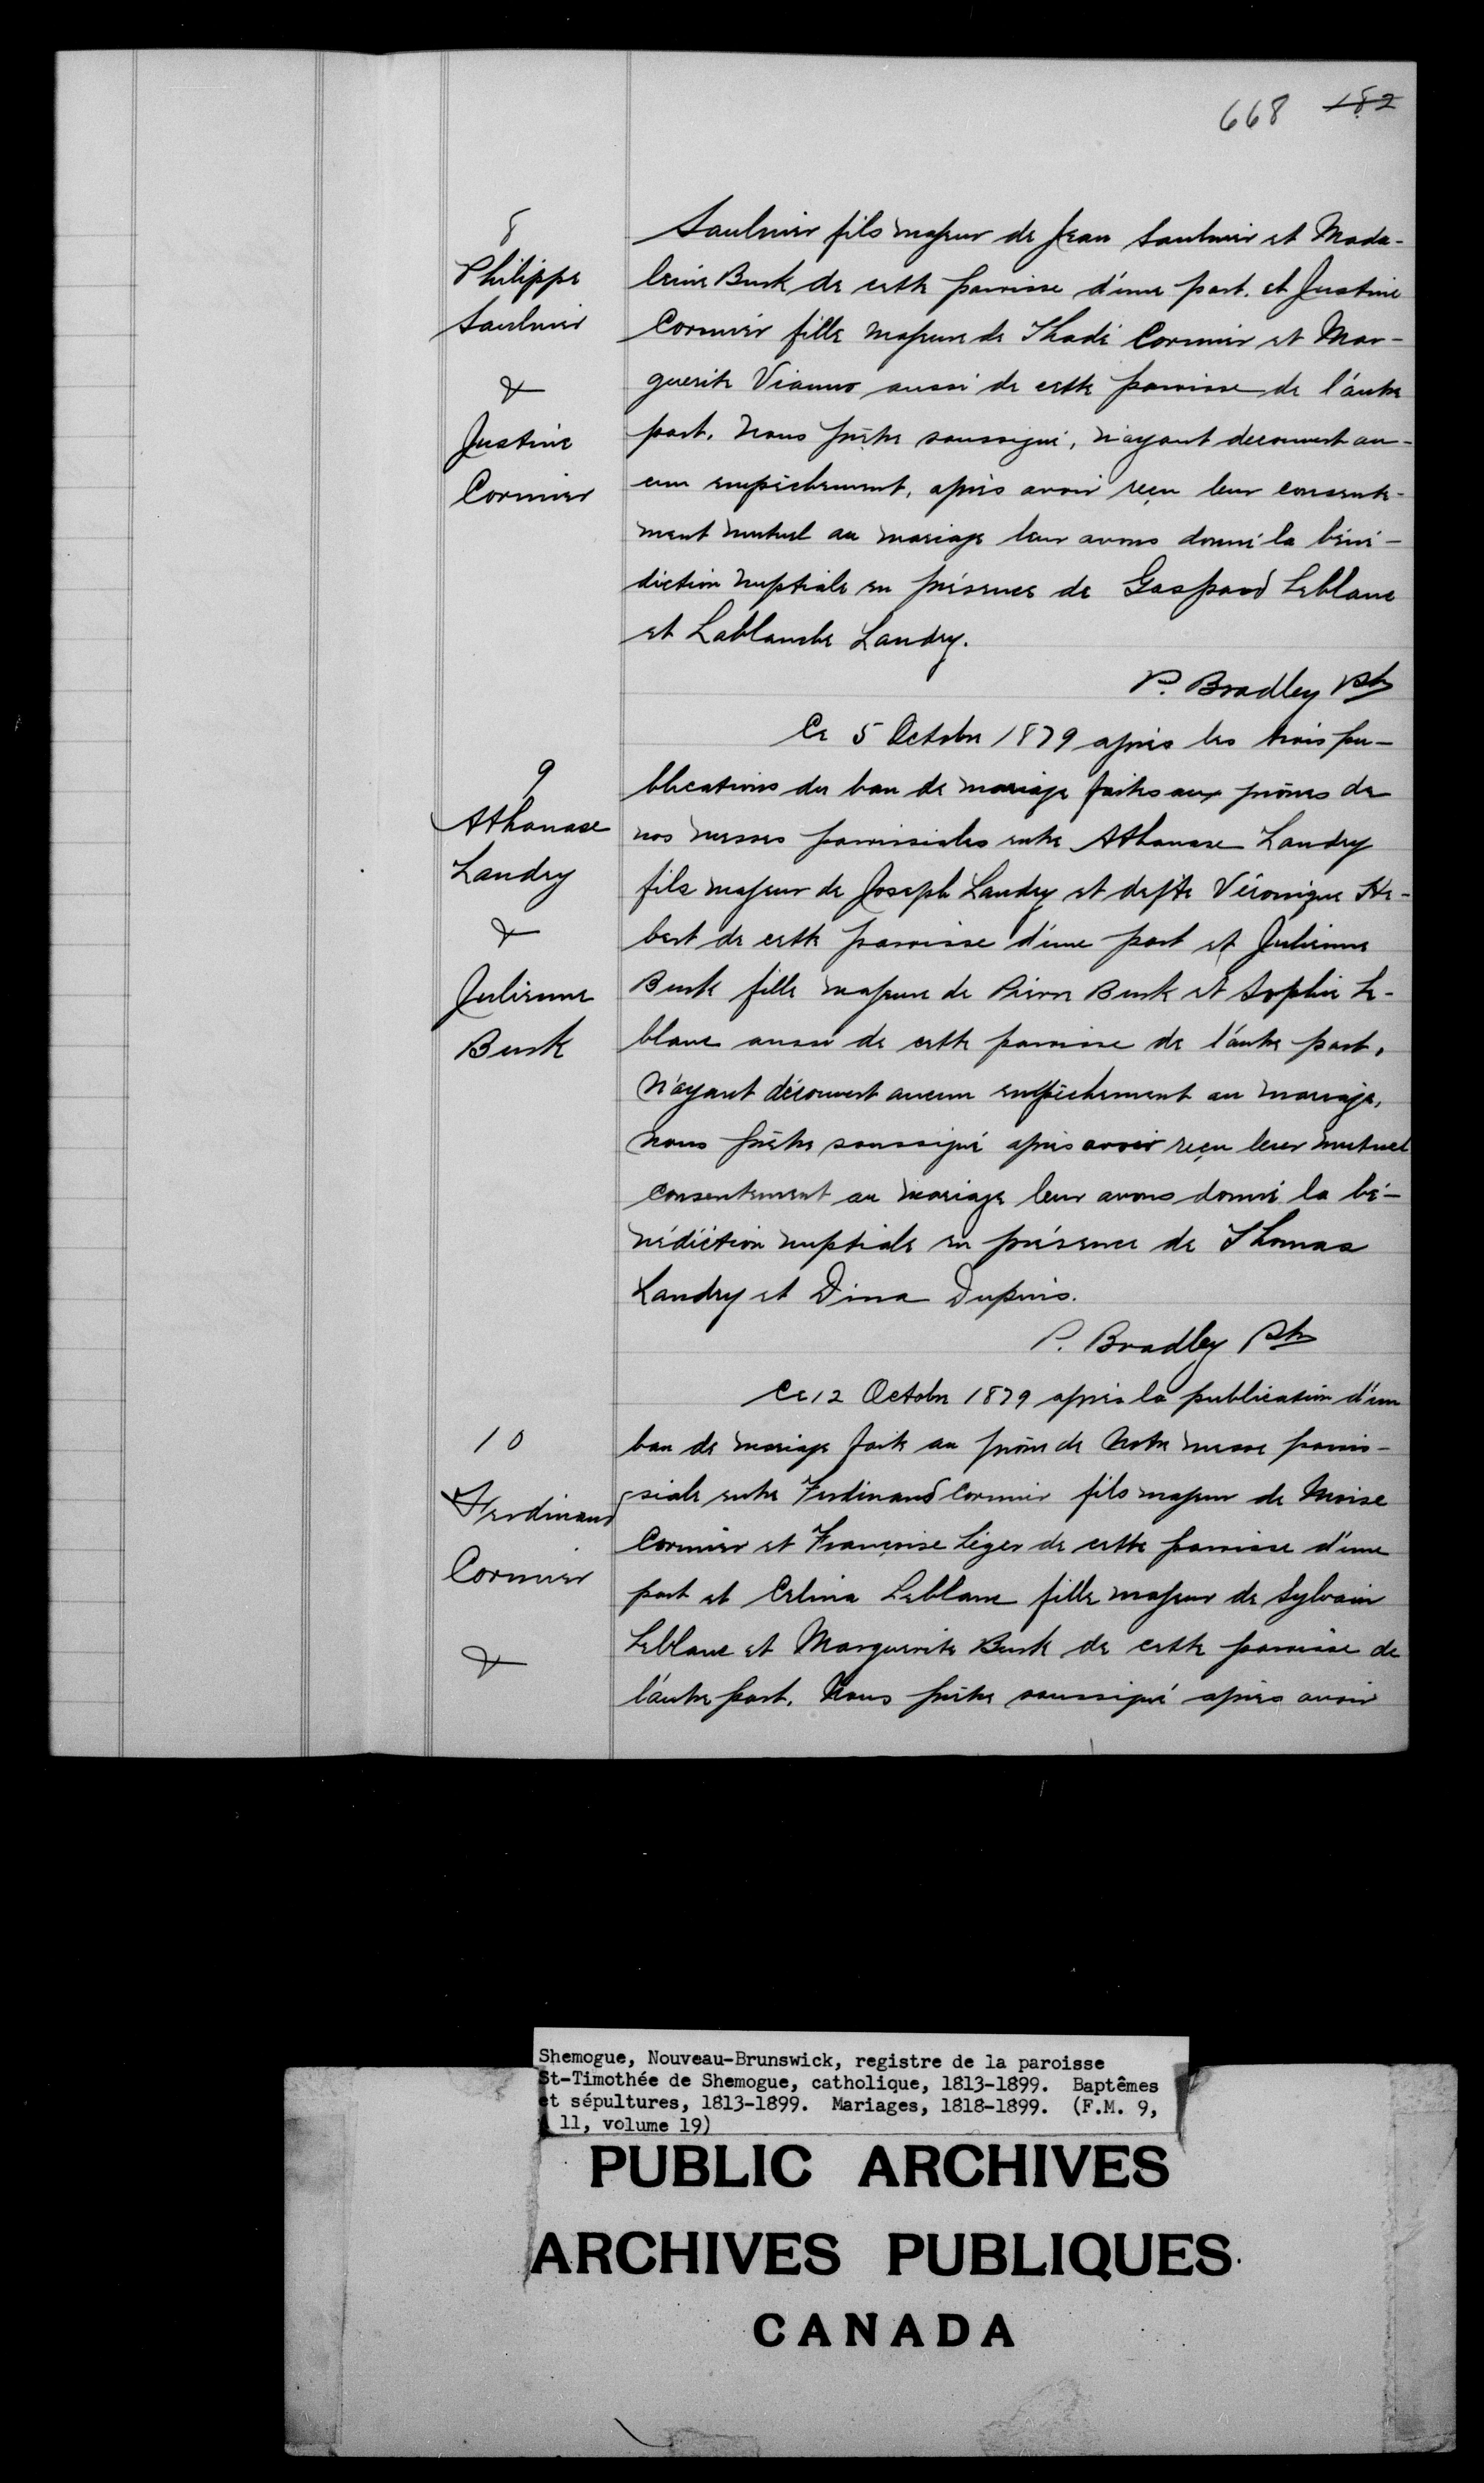 668 182
8
Philippe
Saulnier
&
Justine
Cormier
Saulnier fils majeur de Jean Saulnier et Mada-
leine Burk de cette paroisse d'une part. et Justine
Cormier fille majeure de Thadé Cormier et Mar-
guerite Vianno aussi de cette paroisse de l'autre
part. Nous prêtre soussigné, n'ayant decouvert au-
cun empêchement, après avoir reçu leur consente-
ment mutuel au mariage leur avons donné la béné-
diction nuptiale en présence de Gaspard Leblanc
et Lablanche Landry.
P. Bradley Ptre
9
Athanase
Landry
&
Julienne
Burk
Ce 5 Octobre 1879 après les trois pu-
blications du ban de mariage faites aux prônes de
nos messes paroissiales entre Athanase Landry
fils majeur de Joseph Landry et defte Véronique He-
bert de cette paroisse d'une part et Julienne
Burk fille majeure de Pierre Burk et Sophie Le-
blanc aussi de cette paroisse de l'autre part,
N'ayant découvert aucun empêchement au mariage,
nous prêtre soussigné après avoir reçu leur mutuel
consentement au mariage leur avons donné la bé-
nédiction nuptiale en présence de Thomas
Landry et Dina Dupuis.
P. Bradley Ptre
10
Ferdinand
Cormier
&
Ce 12 Octobre 1879 après la publication d'un
ban de mariage faite au prône de Notre messe parois-
siale entre Ferdinand Cormier fils majeur de Moise
Cormier et Françoise Léger de cette paroisse d'une
part et Celina Leblanc fille majeur de Sylvain
Leblanc et Marguerite Burk de cette paroisse de
l'autre part. Nous prêtre soussigné après avoir
Shemogue, Nouveau-Brunswick, registre de la paroisse
St-Timothée de Shemogue, catholique, 1813-1899. Baptêmes
et sépultures, 1813-1899. Mariages, 1818-1899. (F.M. 9,
11, volume 19)
PUBLIC ARCHIVES
ARCHIVES PUBLIQUES
CANADA